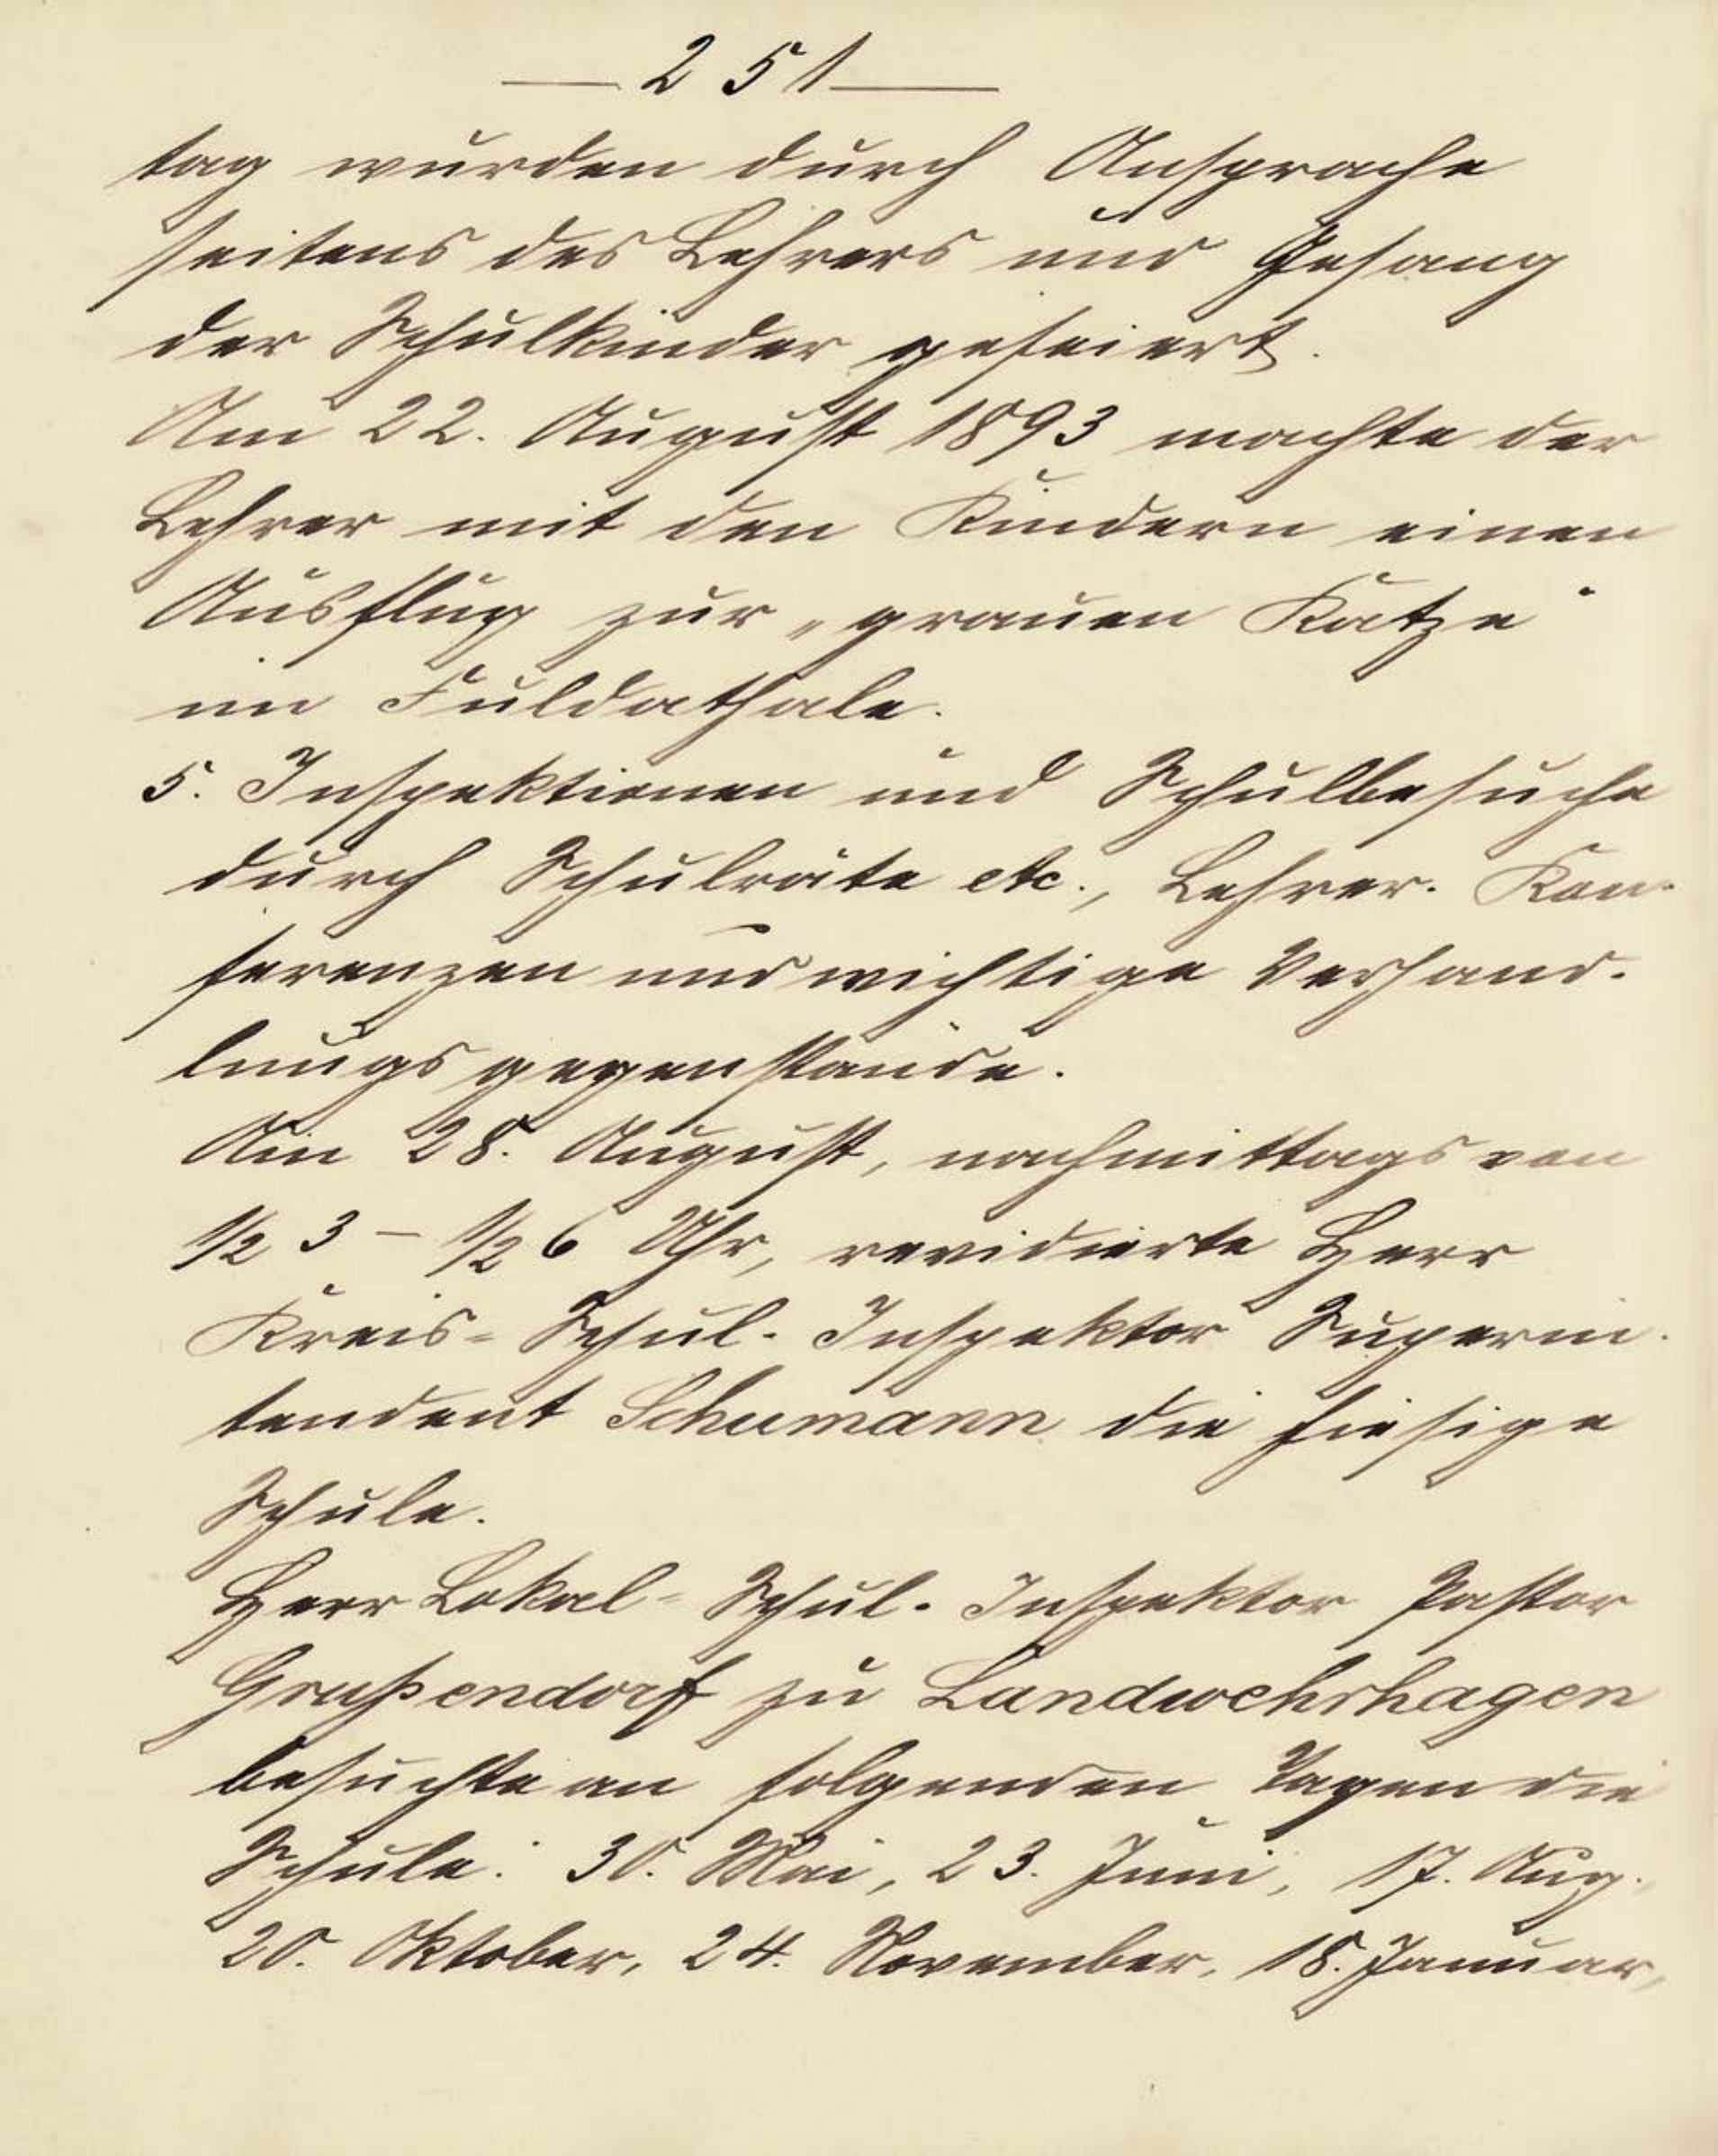 — 251 —
tag wurden durch Ansprache
seitens des Lehrers und Gesang
der Schulkinder gefeiert.
Am 22. August 1893 machte der
Lehrer mit den Kindern einen
Ausflug zur „grauen Katze“
im Fuldathale.
5. Inspektionen und Schulbesuche
durch Schulräte etc., Lehrer-Kon-
ferenzen und wichtige Verhand-
lungsgegenstände.
Am 28. August, nachmittags von
1/2 3 – 1/2 6 Uhr, revidierte Herr
Kreis-Schul-Inspektor Superin-
tendent Schumann die hiesige
Schule.
Herr Lokal-Schul-Inspektor Pastor
Grußendorf zu Landwehrhagen
besuchte an folgenden Tagen die
Schule: 30. Mai, 23. Juni, 17. Aug.
20. Oktober, 24. November, 18. Januar,